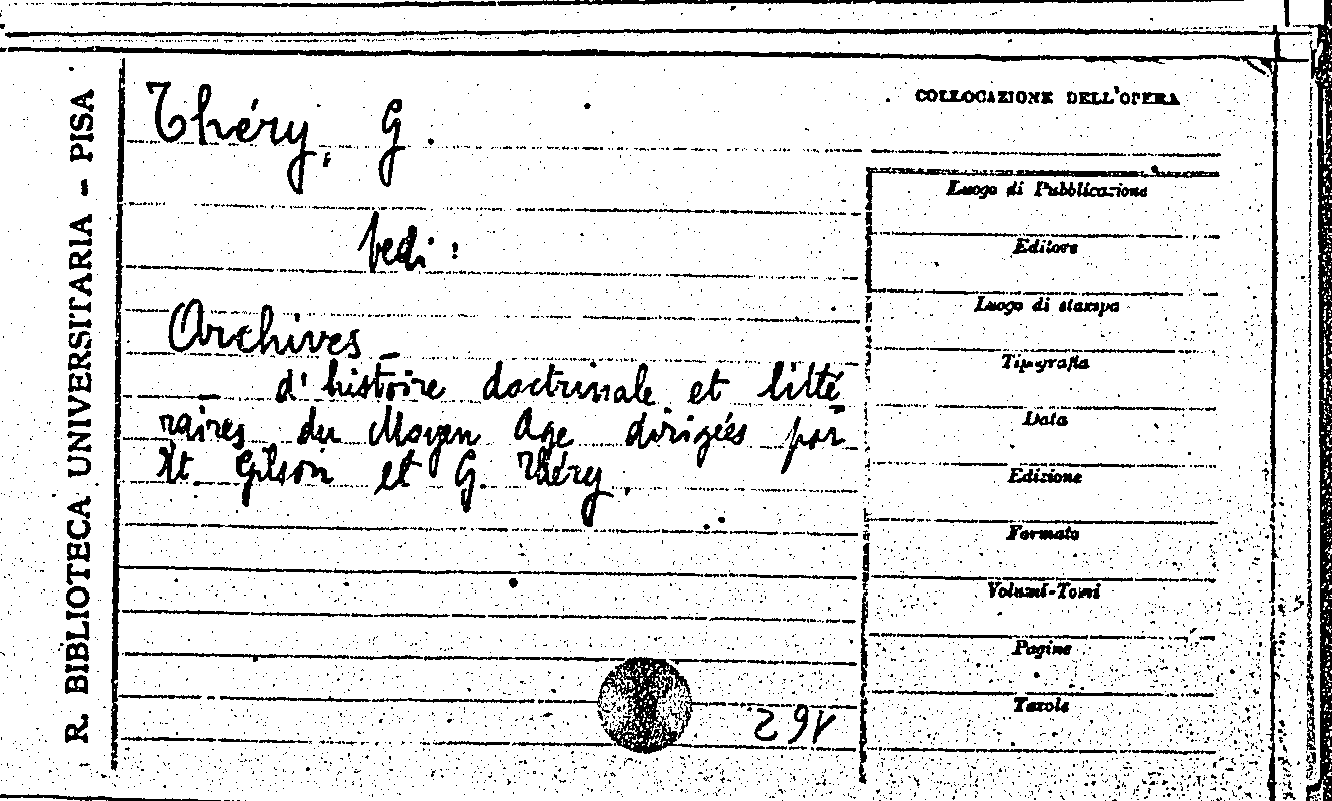 R. BIBLIOTECA UNIVERSITARIA - PISA
Théry, G.
Vedi:
Archives
d'histoire doctrinale et litté
raires du Moyen Age dirigées par
Et. Gilson et G. Théry.
COLLOCAZIONE DELL'OPERA
Luogo di Pubblicazione
Editore
Luogo di stampa
Tipografia
Data
Edizione
Formato
Volumi-Tomi
Pagine
Tavole